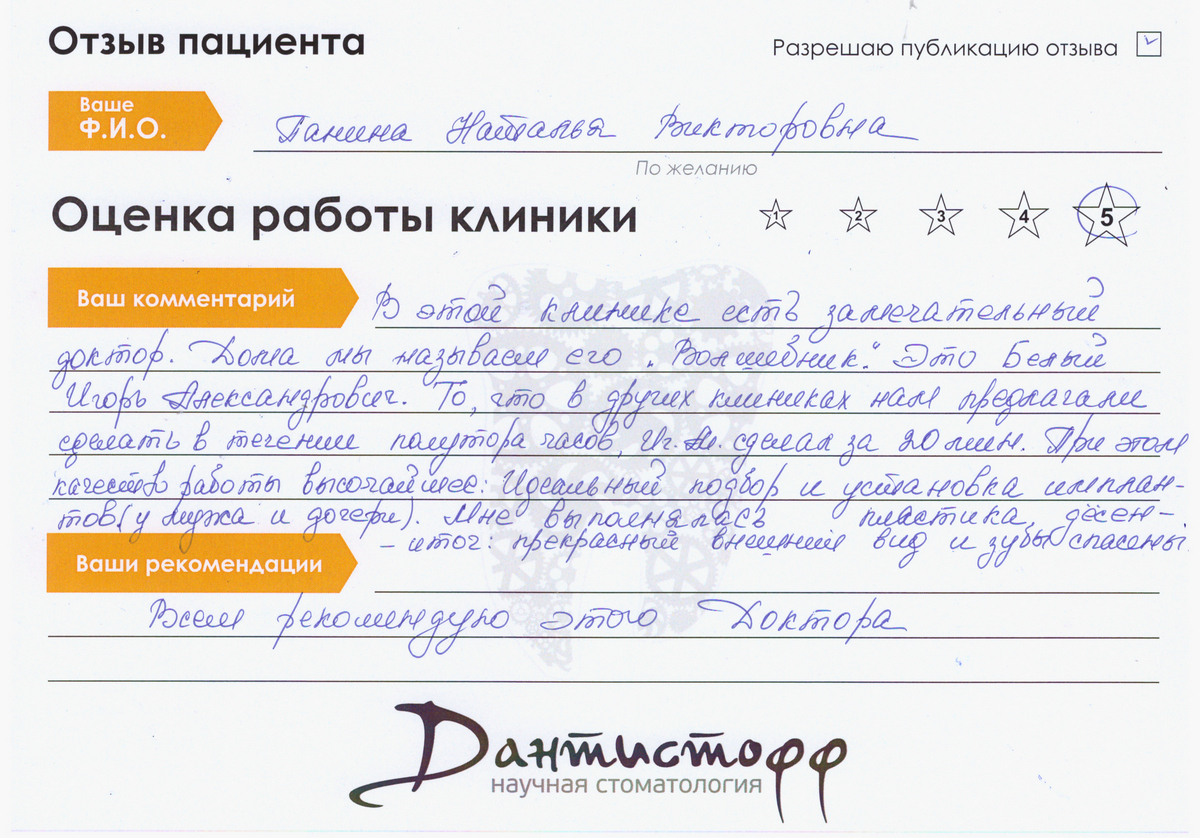 Отзыв пациента
Разрешаю публикацию отзыва
Ваше
Ф.И.О.
Панина Наталья Викторовна
По желанию
Оценка работы клиники
1 2 3 4 5
Ваш комментарий
В этой клинике есть замечательный
доктор. Дома мы называем его "Волшебник". Это Белый
Игорь Александрович. То, что в других клиниках нам предлагали
сделать в течении полутора часов, Иг. Ал. сделал за 20 мин. При этом
качество работы высочайшее: Идеальный подбор и установка имплан-
тов (у мужа и дочери). Мне выполнялась пластика дёсен-
- итог: прекрасный внешний вид и зубы спасены
Ваши рекомендации
Всем рекомендую этого Доктора
Дантистофф
научная стоматология